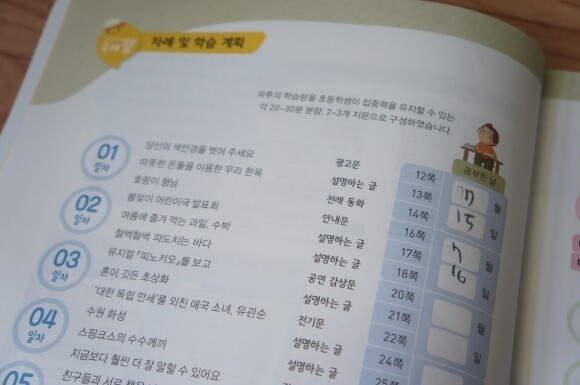 차례 및 학습 계획
하루의 학습량을 초등학생이 집중력을 유지할 수 있는
약 20~30분 분량, 2~3개 지문으로 구성하였습니다.
공부한 날
01 일차
당신의 색안경을 벗어 주세요 광고문 12쪽
따뜻한 온돌을 이용한 우리 한옥 설명하는 글 13쪽
호랑이 형님 전래 동화 14쪽
7월
15일
02 일차
봄맞이 어린이극 발표회 안내문 16쪽
여름에 즐겨 먹는 과일, 수박 설명하는 글 17쪽
철썩철썩 파도치는 바다 설명하는 글 18쪽
7월
16일
03 일차
뮤지컬 「피노키오」를 보고 공연 감상문 20쪽
혼이 깃든 초상화 설명하는 글 21쪽
'대한 독립 만세'를 외친 애국 소녀, 유관순 전기문 22쪽
월
일
04 일차
수원 화성 설명하는 글 24쪽
스핑크스의 수수께끼
지금보다 훨씬 더 잘 말할 수 있어요
05